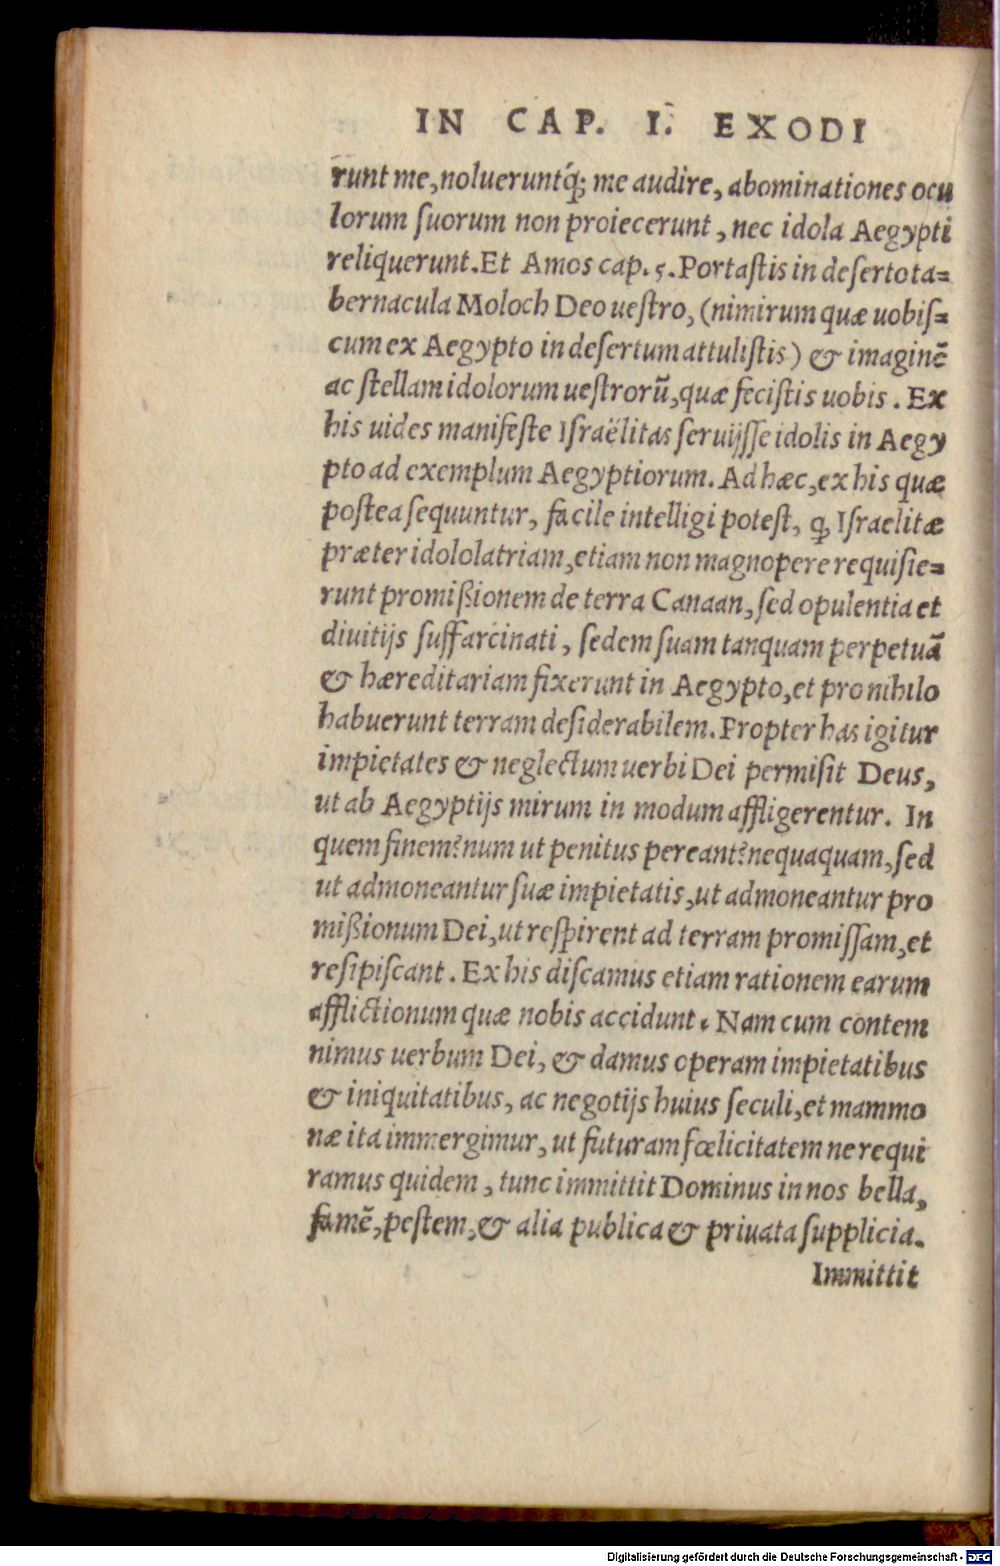 IN CAP. I. EXODI
runt me, nolueruntq́; me audire, abominationes ocu
lorum ſuorum non proiecerunt, nec idola Aegypti
reliquerunt. Et Amos cap. 5. Portaſtis in deſerto ta=
bernacula Moloch Deo ueſtro, (nimirum quæ uobiſ=
cum ex Aegypto in deſertum attuliſtis) & imaginẽ
ac ſtellam idolorum ueſtrorũ, quæ feciſtis uobis. Ex
his uides manifeſte Iſraëlitas ſeruijſſe idolis in Aegy
pto ad exemplum Aegyptiorum. Ad hæc, ex his quæ
poſtea ſequuntur, facile intelligi poteſt, ꝙ Iſraelitæ
præter idololatriam, etiam non magnopere requiſie=
runt promißionem de terra Canaan, ſed opulentia et
diuitijs ſuffarcinati, ſedem ſuam tanquam perpetuã
& hæreditariam fixerunt in Aegypto, et pro nihilo
habuerunt terram deſiderabilem. Propter has igitur
impietates & neglectum uerbi Dei permiſit Deus,
ut ab Aegyptijs mirum in modum affligerentur. In
quem finem? num ut penitus pereant? nequaquam, ſed
ut admoneantur ſuæ impietatis, ut admoneantur pro
mißionum Dei, ut reſpirent ad terram promiſſam, et
reſipiſcant. Ex his diſcamus etiam rationem earum
afflictionum quæ nobis accidunt. Nam cum contem
nimus uerbum Dei, & damus operam impietatibus
& iniquitatibus, ac negotijs huius ſeculi, et mammo
næ ita immergimur, ut futuram fœlicitatem ne requi
ramus quidem, tunc immittit Dominus in nos bella,
famẽ, peſtem, & alia publica & priuata ſupplicia.
Immittit
Digitalisierung gefördert durch die Deutsche Forschungsgemeinschaft - DFG